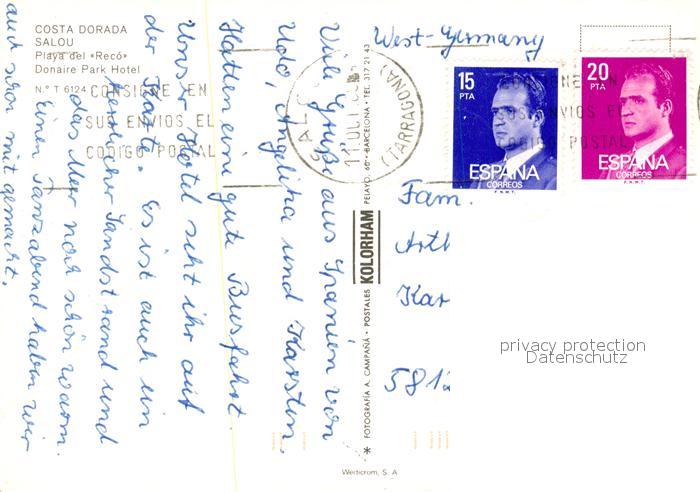 COSTA DORADA
SALOU
Playa del «Recó»
Donaire Park Hotel
N.º T 6124
CONSIGNE EN
SUS ENVIOS EL
CODIGO POSTAL
Viele Grüße aus Spanien von
Udo, Angelika und Karsten.
Hatten eine gute Busfahrt.
Unser Hotel seht ihr auf
der Karte. Es ist auch ein
herrlicher Sandstrand und
das Meer noch schön warm.
Einen Tanzabend haben wir
auch schon mit gemacht.
SALOU
(TARRAGONA)
11 OCT
* FOTOGRAFÍA A. CAMPAÑÁ · POSTALES KOLORHAM PELAYO, 60 · BARCELONA · TEL. 317 21 43
West-Germany
15
PTA
ESPAÑA
CORREOS
F.N.M.T.
20
PTA
CONSIGNE EN
SUS ENVIOS EL
CODIGO POSTAL
ESPAÑA
CORREOS
F.N.M.T.
Fam.
Art
Kar
581
privacy protection
Datenschutz
Werticrom, S. A